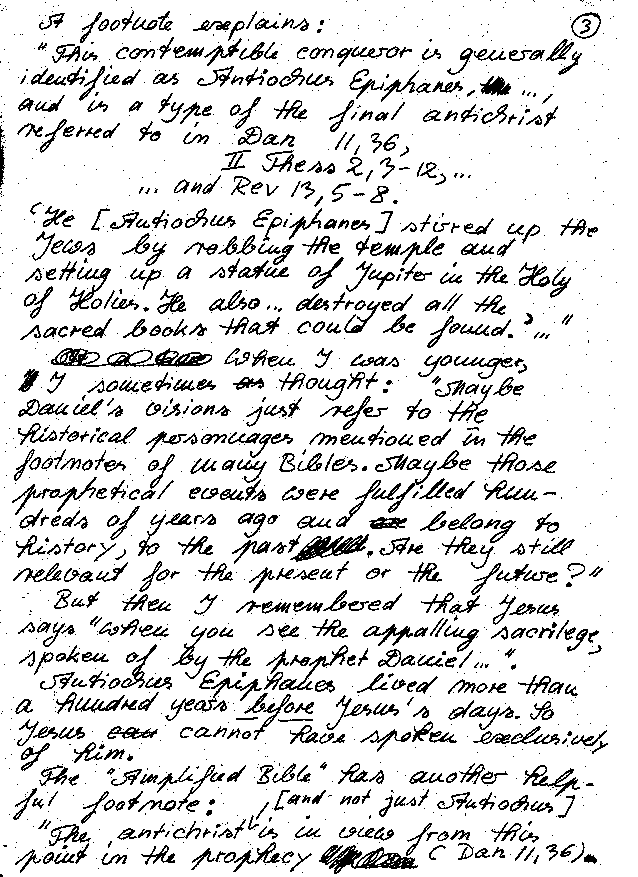 A footnote explains: ③
"This contemptible conqueror is generally
identified as Antiochus Epiphanes, ...,
and is a type of the final antichrist
referred to in Dan 11,36,
II Thess 2,3-12,...
... and Rev 13,5-8.
'He [Antiochus Epiphanes] stirred up the
Jews by robbing the temple and
setting up a statue of Jupiter in the Holy
of Holies. He also... destroyed all the
sacred books that could be found.'..."
When I was younger,
I sometimes thought: "Maybe
Daniel's visions just refer to the
historical personnages mentioned in the
footnotes of many Bibles. Maybe those
prophetical events were fulfilled hun-
dreds of years ago and belong to
history, to the past. Are they still
relevant for the present or the future?"
But then I remembered that Jesus
says "When you see the appalling sacrilege,
spoken of by the prophet Daniel...".
Antiochus Epiphanes lived more than
a hundred years before Jesus's days. So
Jesus cannot have spoken exclusively
of him.
The "Amplified Bible" has another help-
ful footnote: , [and not just Antiochus]
"The antichrist is in view from this
point in the prophecy (Dan 11,36).